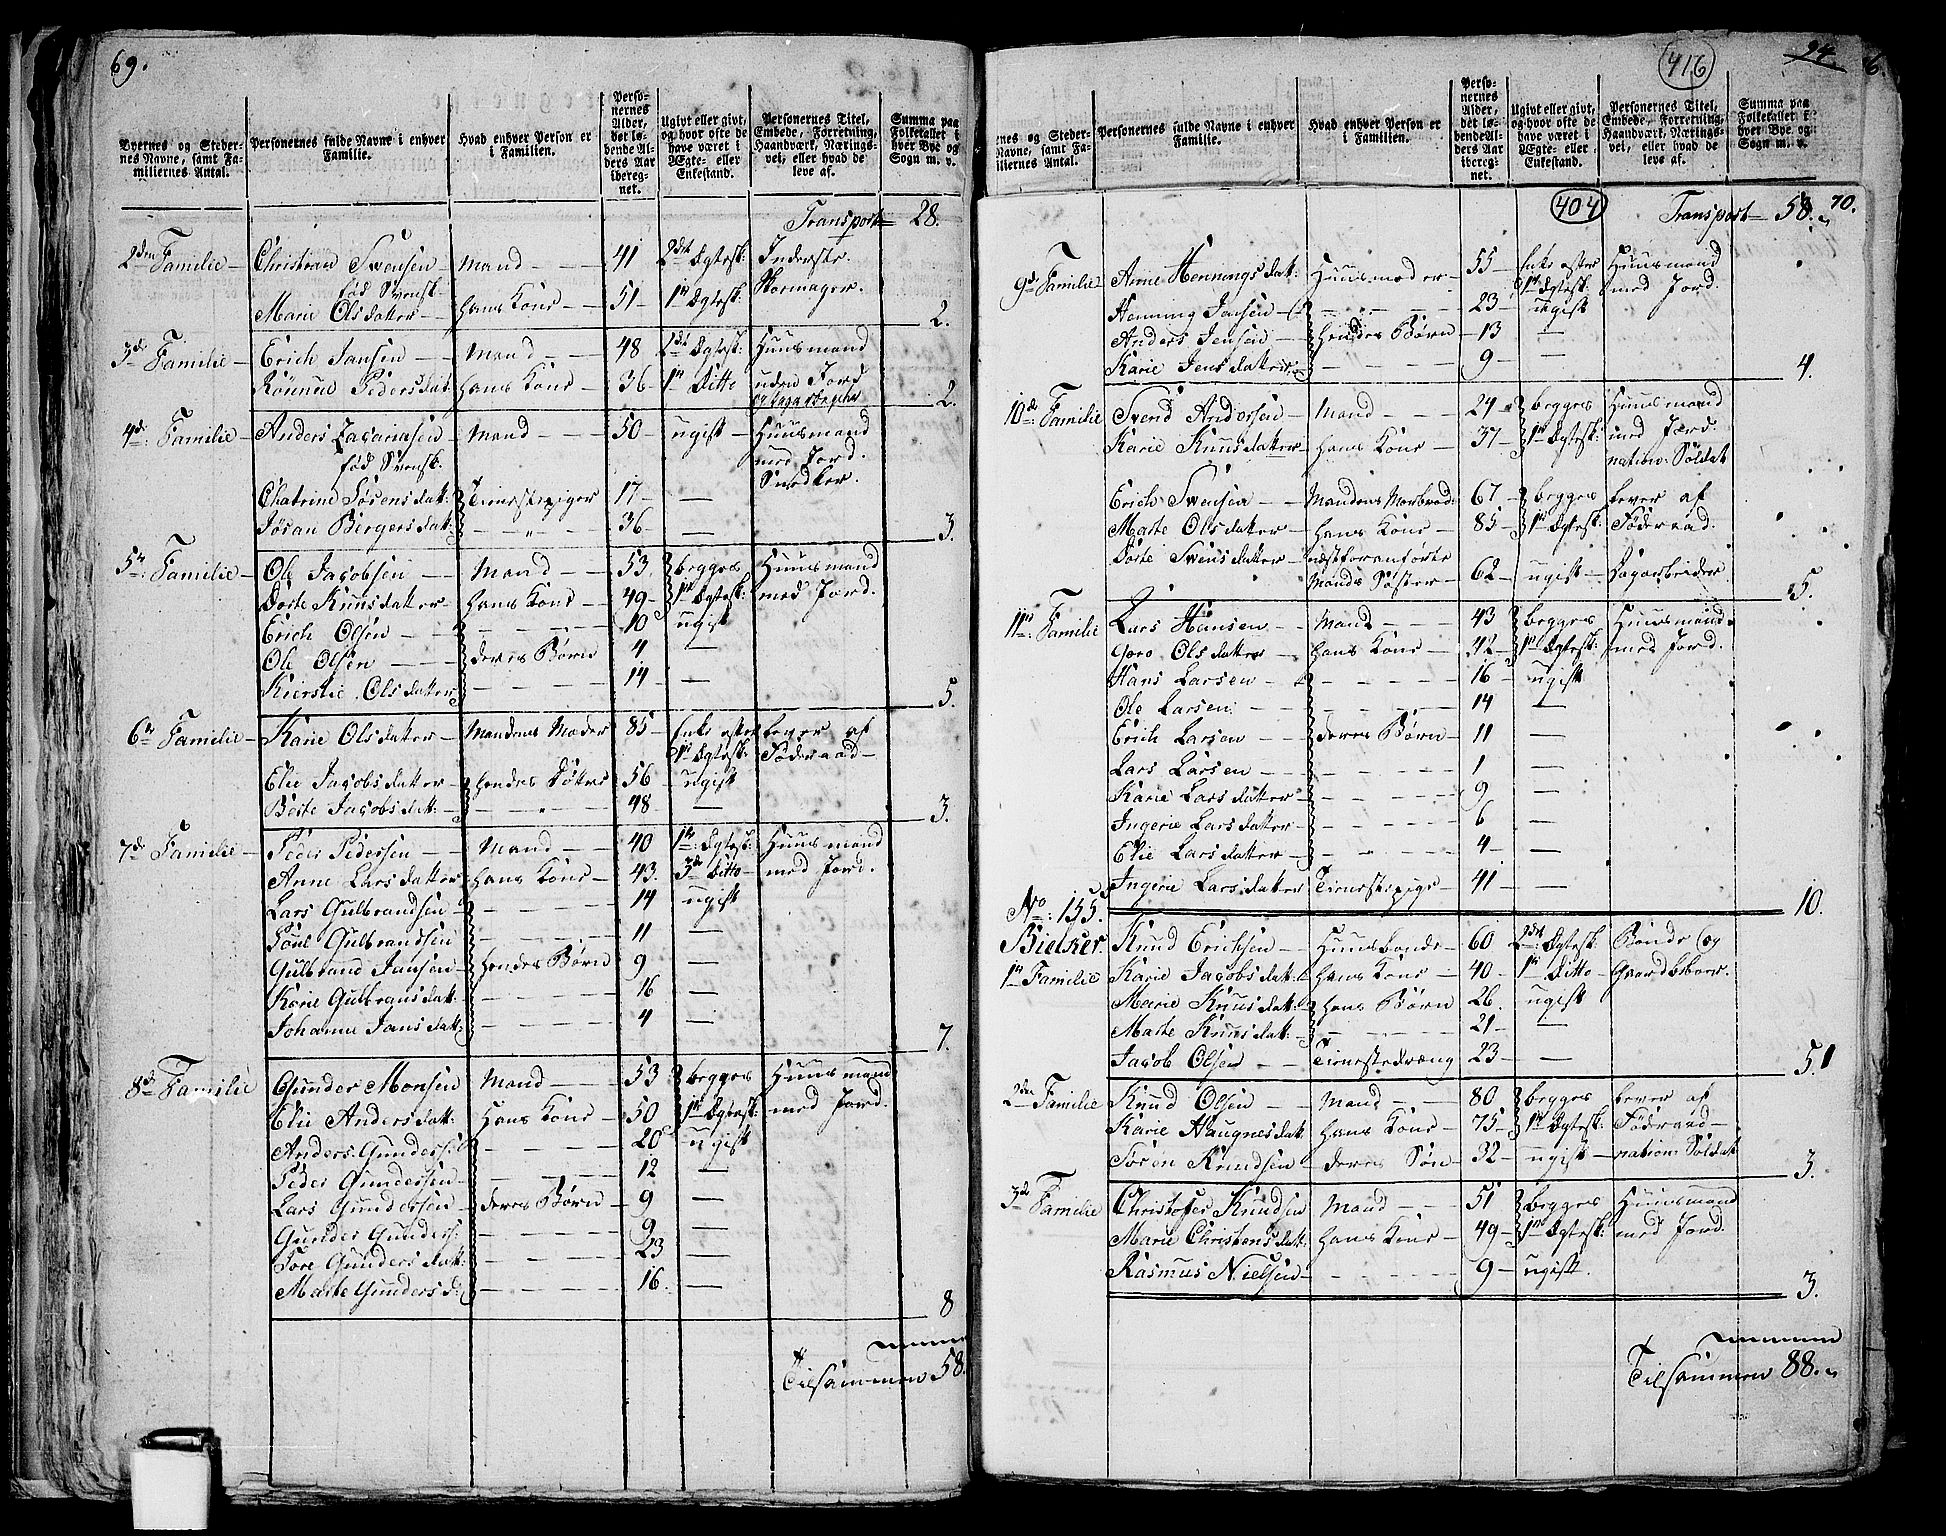 69.
Byernes og Stedernes Navne, samt Familiernes Antal.
Personernes fulde Navne i enhver Familie.
Hvad enhver Person er i Familien.
Personernes Alder, det løbende Alders Aar iberegnet.
Ugivt eller givt, og hvor ofte de have været i Ægte- eller Enkestand.
Personernes Titel, Embede, Forretning, Haandværk, Næringsvei, eller hvad de leve af.
Summa paa Folketallet i hver Bye og Sogn m. v.
Transport 28.
2den Familie Christian Swensen Mand 41 2det Egtesk: Inderste
fød Svensk Skomager
Marie Olsdatter hans Kone 51 1te Egtesk: 2.
3de Familie Erich Jansen Mand 48 2det Egtesk: Huusmand
Rönnue Pedersdat: hans Kone 36 1te Ditto uden Jord
2.
4de Familie Anders Zacariasen Mand 50 ugift Huusmand
fød Svensk med Jord. Snedker.
Chatrine Josensdat: Tienestepiger 17 —
Jøran Bergersdat: 36 — 3.
5te Familie Ole Jacobsen Mand 53 begges Huusmand
Dorte Knusdatter hans Kone 49 1te Egtesk: med Jord.
Erich Olsen 10 ugift
Ole Olsen deres Børn 4 —
Kierstie Olsdatter 14 — 5.
6te Familie Karie Olsdatter Mandens Moder 85 Enke efter lever af
1te Egtesk: Föderaad
Elie Jacobsdatter hendes Døttre 56 ugift
Berte Jacobsdat: 48 — 3.
7de Familie Peder Pedersen Mand 40 1te Egtesk: Huusmand
Anne Larsdatter hans Kone 43. 3de Ditto med Jord.
Lars Gulbrandsen 14 ugift
Poul Gulbrandsen 11 —
Gulbrand Jansen hendes Børn 9 —
Karie Gulbransdat: 16 —
Johanne Jansdat: 4 — 7.
8de Familie Gunder Monsen Mand 53 begges Huusmand
Elie Andersdat: hans Kone 50 1te Egtesk: med Jord.
Anders Gunders: 20 ugift
Peder Gundersen 12 —
Lars Gundersen deres Børn 9 —
Gunder Gunders: 9 —
Tore Gundersdat: 23 —
Marte Gundersd: 16 — 8
Tilsammen 58.
416
94
6.
nes og Stedernes Navne, samt Familiernes Antal.
Personernes fulde Navne i enhver Familie.
Hvad enhver Person er i Familien.
Personernes Alder, det løbende Alders Aar iberegnet.
Ugivt eller givt, og hvor ofte de have været i Ægte- eller Enkestand.
Personernes Titel, Embede, Forretning, Haandværk, Næringsvei, eller hvad de leve af.
Summa paa Folketallet i hver Bye og Sogn m. v.
404 Transport 58. 70.
9de Familie Anne Henningsdat: Huusmoder 55 Enke efter Huusmand
1te Egtesk: med Jord.
Henning Jensen 23 ugift
Anders Jensen hendes Børn 13 —
Karie Jensdatter 9 — 4.
10de Familie Svend Andersen Mand 24 begges Huusmand
Karie Knusdatter hans Kone 37 1te Egtesk: med Jord.
nation: Soldat
Erich Swensen Mandens Morbrod: 67 begges lever af
Marte Olsdatter hans Kone 85 1te Egtesk: Föderaad.
Dorte Svensdatter næstforanførte
Mands Søster 62 ugift Dagarbeider 5.
11te Familie Lars Hansen Mand 43 begges Huusmand
Goro Olsdatter hans Kone 42 1te Egtesk: med Jord.
Hans Larsen 16 ugift
Ole Larsen 14 —
Erich Larsen deres Børn 11
Lars Larsen 1
Karie Larsdatter 9 —
Ingerie Larsdatter 6 —
Elie Larsdatter 4 —
Ingerie Larsdatter Tienestepige 41 — 10.
No: 155.
Bielker. Knud Erichsen Huusbonde 60 2det Egtesk: Bonde og
1te Familie Karie Jacobsdat: hans Kone 40 1te Ditto Gaardbeboer.
Marie Knusdat: hans Børn 26. ugift
Marte Knusdat: 21 —
Jacob Olsen Tienestedræng 23 — 5
2den Familie Knud Olsen Mand 80 begges lever af
Karie Haugnesdat: hans Kone 75 1te Egtesk: Föderaad
Soren Knudsen deres Søn 32 ugift nation: Soldat 3.
3de Familie Christofer Knudsen Mand 51 begges Huusmand
Marie Christensdat: hans Kone 49 1te Egtesk: med Jord.
Rasmus Nielsen 9 ugift. 3.
Tilsammen 88.